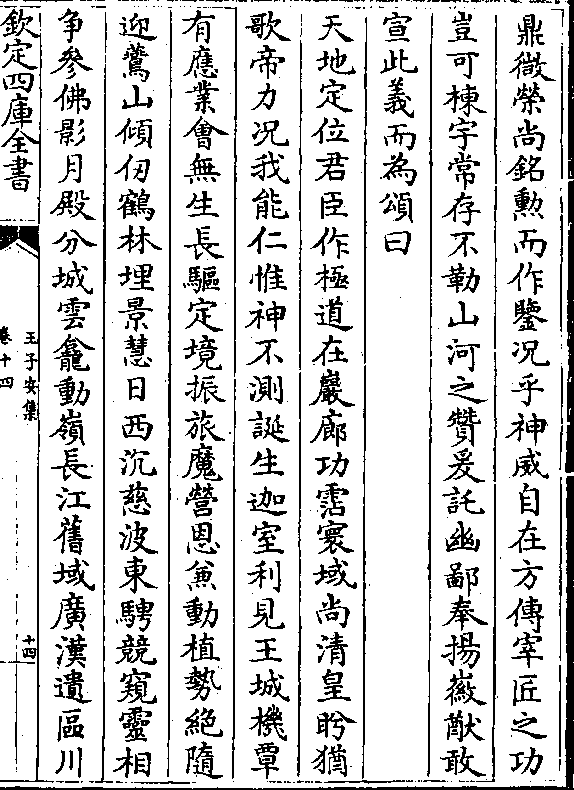 鼎微榮尚銘勲而作鑒况乎神威自在方傳宰匠之功
豈可棟宇常存不勒山河之贊爰託幽鄙奉揚嶶猷敢
宣此義而為頌曰
天地定位君臣作極道在巖廊功霑寰域尚清皇眄猶
歌帝力况我能仁惟神不測誕生迦室利見王城機覃
有應業會無生長驅定境振旅魔營恩兼動植勢絶隨
迎鷲山傾仞鶴林埋景慧日西沉慈波東騁競窺靈相
争參佛影月殿分城雲龕動嶺長江舊域廣漢遺區川
欽定四庫全書
王子安集
卷十四
十四